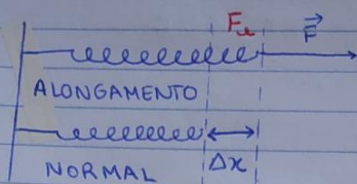 Fₑ F⃗
ALONGAMENTO
NORMAL Δx